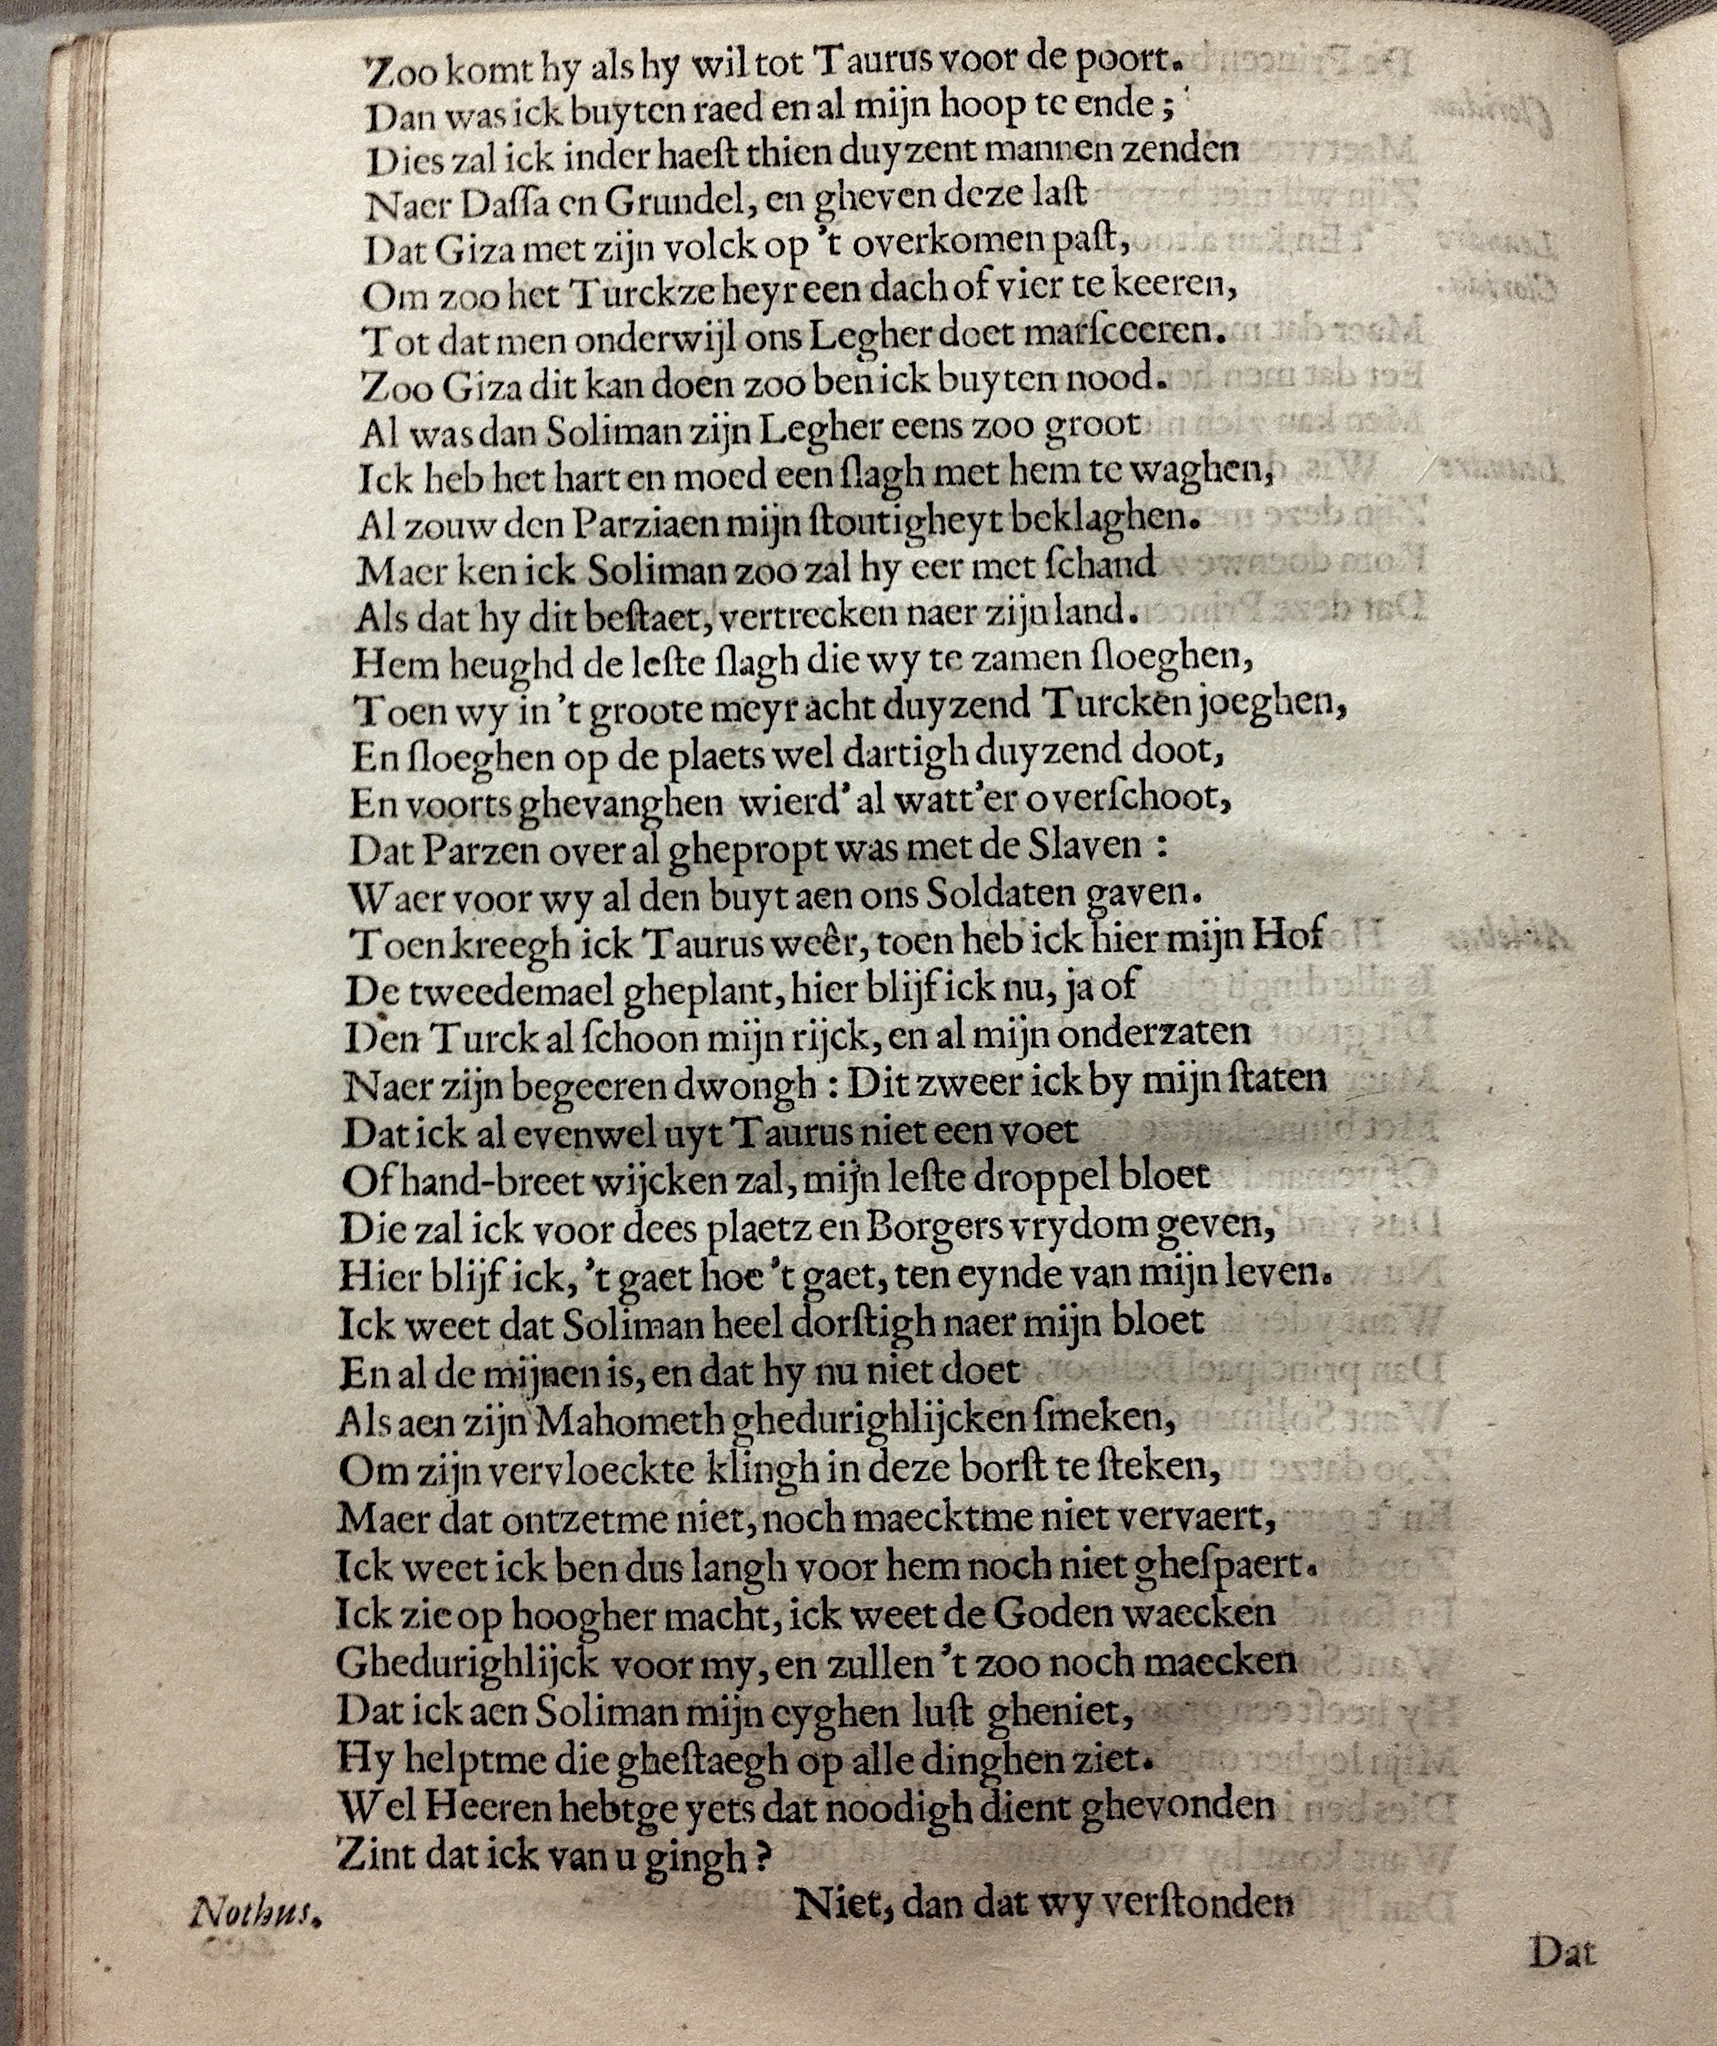 Zoo komt hy als hy wil tot Taurus voor de poort.
Dan was ick buyten raed en al mijn hoop te ende;
Dies zal ick inder haeſt thien duyzent mannen zenden
Naer Daſſa en Grundel, en gheven deze laſt
Dat Giza met zijn volck op 't overkomen paſt,
Om zoo het Turckze heyr een dach of vier te keeren,
Tot dat men onderwijl ons Legher doet marſceeren.
Zoo Giza dit kan doen zoo ben ick buyten nood.
Al was dan Soliman zijn Legher eens zoo groot
Ick heb het hart en moed een ſlagh met hem te waghen,
Al zouw den Parziaen mijn ſtoutigheyt beklaghen.
Maer ken ick Soliman zoo zal hy eer met ſchand
Als dat hy dit beſtaet, vertrecken naer zijn land.
Hem heughd de leſte ſlagh die wy te zamen ſloeghen,
Toen wy in 't groote meyr acht duyzend Turcken joeghen,
En ſloeghen op de plaets wel dartigh duyzend doot,
En voorts ghevanghen wierd' al watt'er overſchoot,
Dat Parzen over al ghepropt was met de Slaven :
Waer voor wy al den buyt aen ons Soldaten gaven.
Toen kreegh ick Taurus weêr, toen heb ick hier mijn Hof
De tweedemael gheplant, hier blijf ick nu, ja of
Den Turck al ſchoon mijn rijck, en al mijn onderzaten
Naer zijn begeeren dwongh : Dit zweer ick by mijn ſtaten
Dat ick al evenwel uyt Taurus niet een voet
Of hand-breet wijcken zal, mijn leſte droppel bloet
Die zal ick voor dees plaetz en Borgers vrydom geven,
Hier blijf ick, 't gaet hoe 't gaet, ten eynde van mijn leven.
Ick weet dat Soliman heel dorſtigh naer mijn bloet
En al de mijnen is, en dat hy nu niet doet
Als aen zijn Mahometh ghedurighlijcken ſmeken,
Om zijn vervloeckte klingh in deze borſt te ſteken,
Maer dat ontzetme niet, noch maecktme niet vervaert,
Ick weet ick ben dus langh voor hem noch niet gheſpaert.
Ick zie op hoogher macht, ick weet de Goden waecken
Ghedurighlijck voor my, en zullen 't zoo noch maecken
Dat ick aen Soliman mijn eyghen luſt gheniet,
Hy helptme die gheſtaegh op alle dinghen ziet.
Wel Heeren hebtge yets dat noodigh dient ghevonden
Zint dat ick van u gingh?
Nothus. Niet, dan dat wy verſtonden
Dat